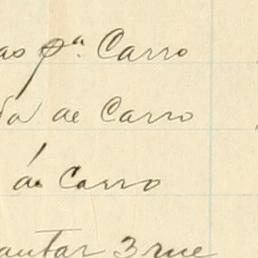 as pª. Carro
da de Carro
de Carro
antar 3 rue